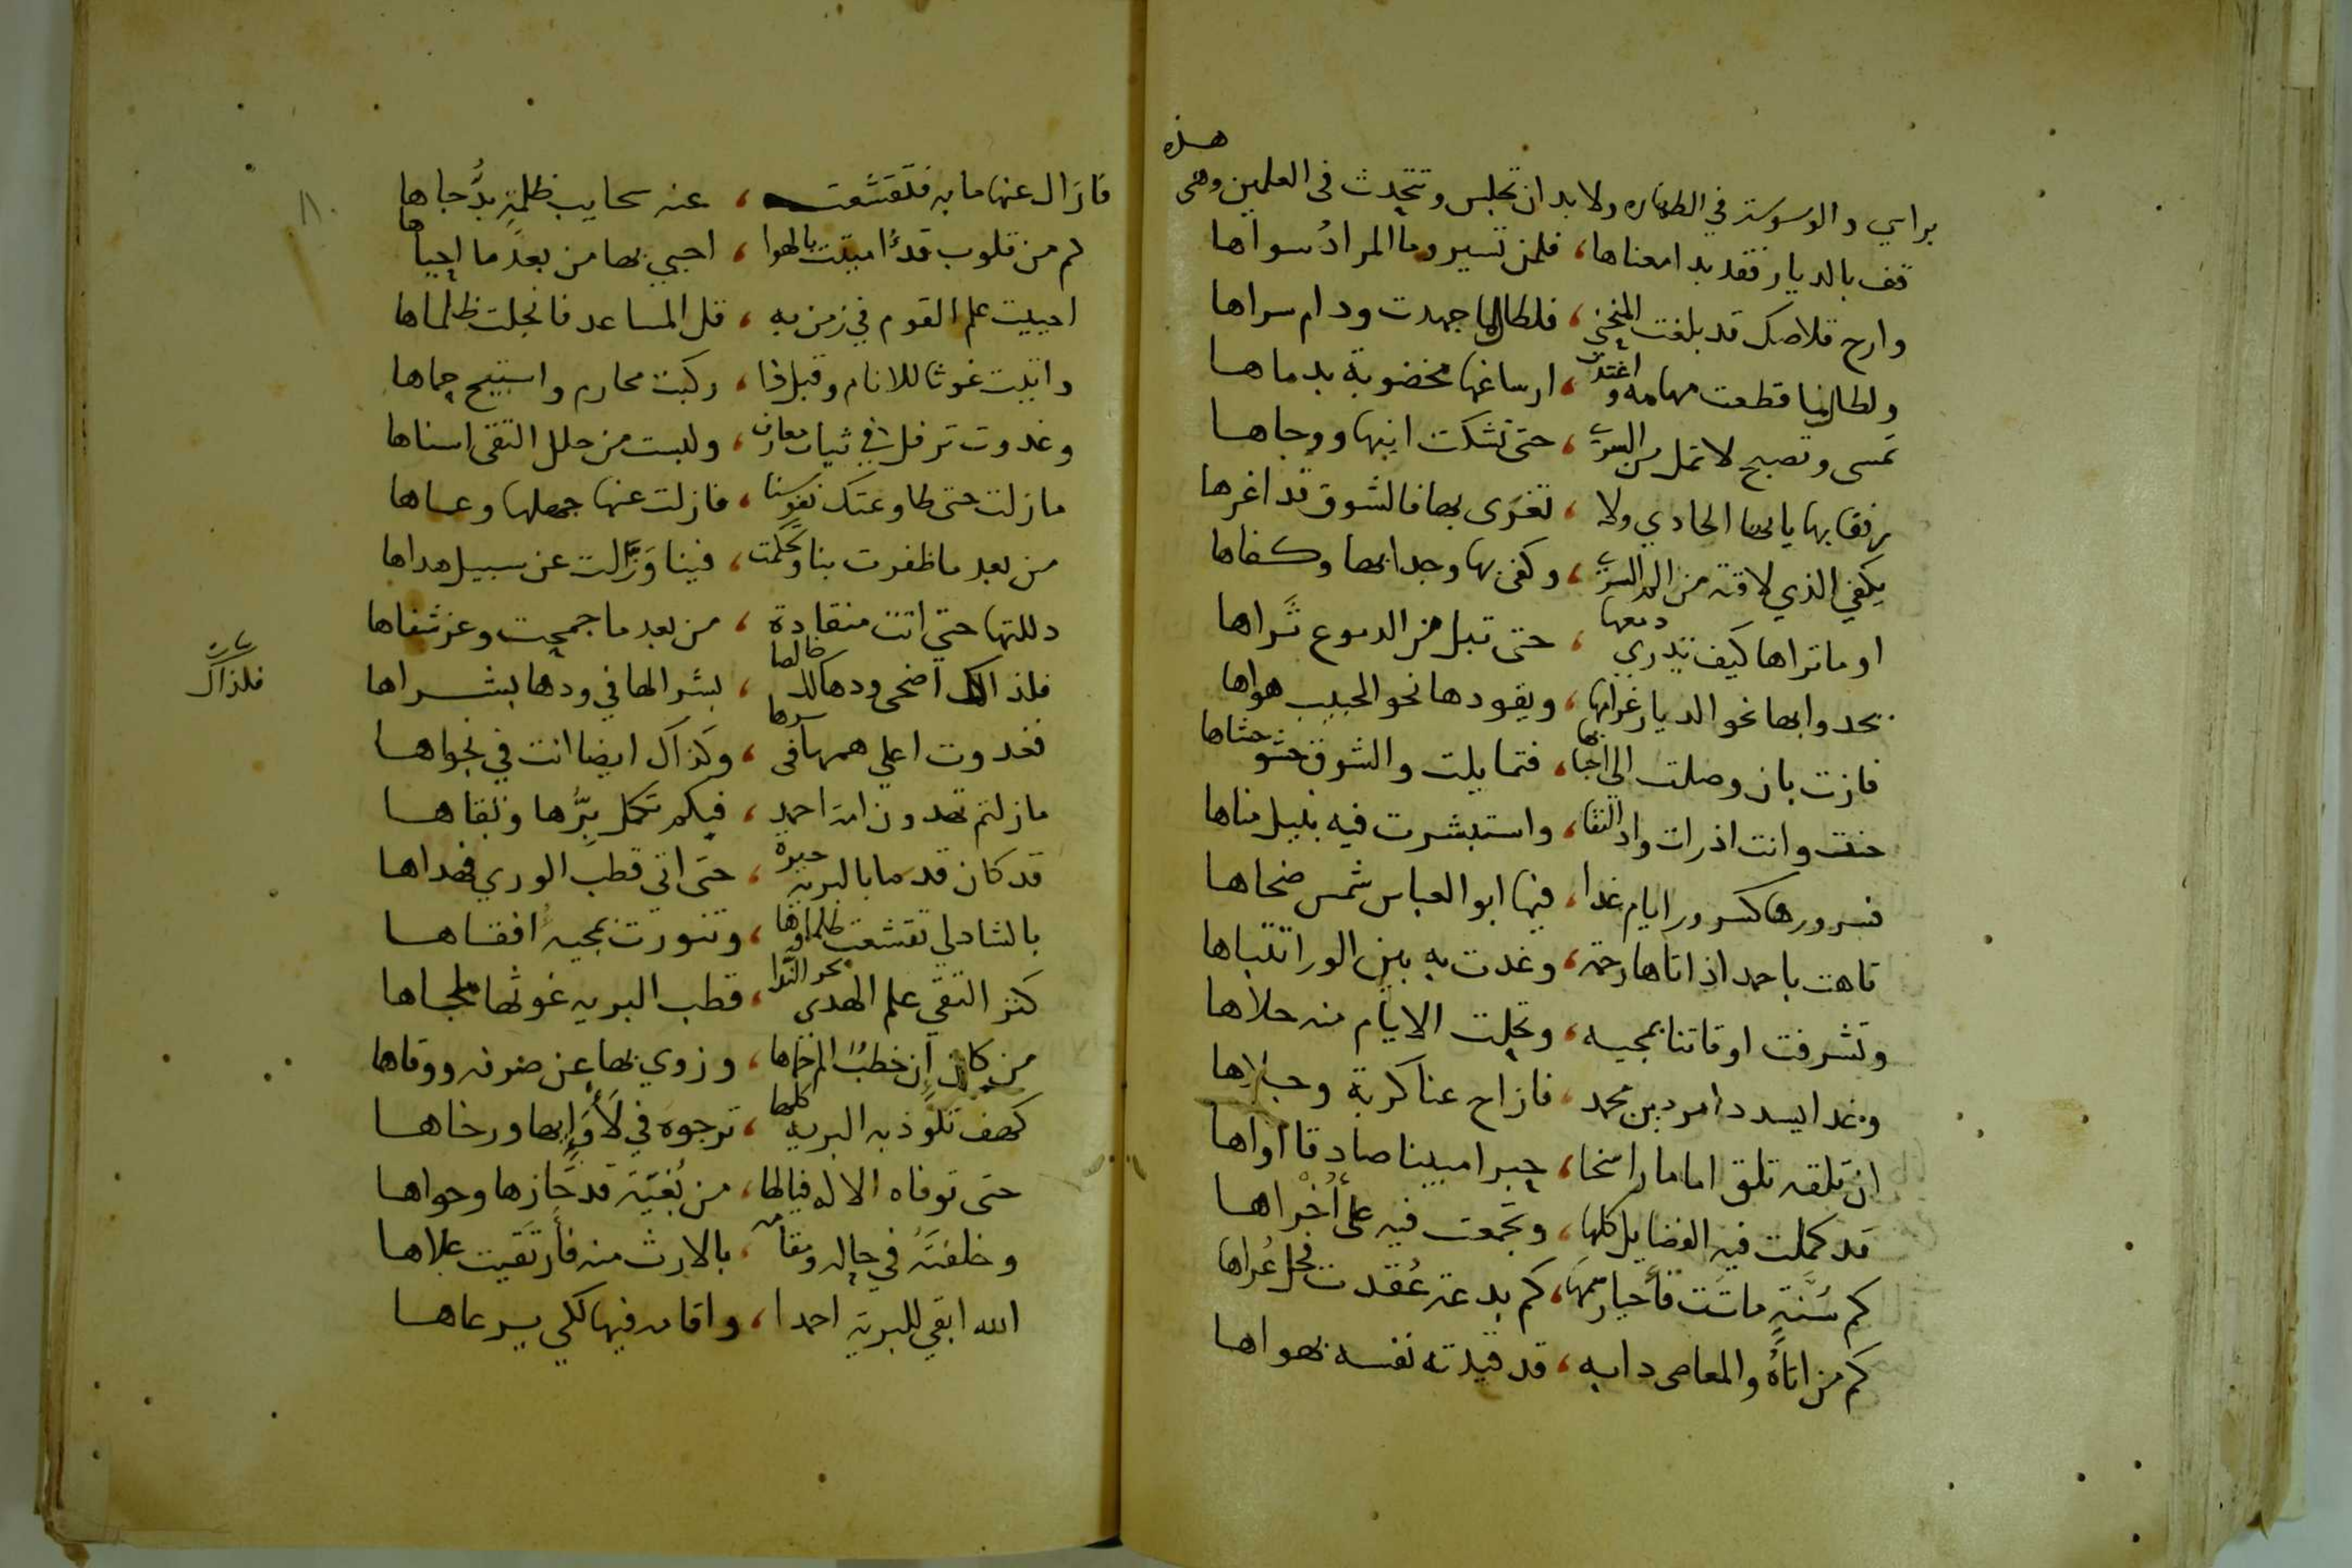 براسي والوسوسة في الطهاره ولا بد ان تجلس وتتحدث فى العلمين وهى هذه
قف بالديار فقد بدا معناها ، فلمن تسير وما المرادُ سواها
وارح قلاصك قد بلغت المنحني ، فلطالما جهدت ودام سراها
ولطالما قطعت مهامه واغتدت ، ارساغها مخضوبة بدماها
تمسى وتصبح لا تمل من السرى ، حتى تشكت اينها ووجاها
رفقا بها يا ايها الحادي ولا ، تغرى بها فالشوق قد اغرها
يكفي الذي لاقته من الم السرى ، وكفى بها وجدا بها وكفاها
او ما تراها كيف تذري دمعها ، حتى تبل من الدموع ثراها
يحدوا بها نحو الديار غرامها ، ويقودها نحو الحبيب هواها
فازت بان وصلت الي احبابها ، فتمايلت والشوق حشو حشاها
حنت وانت اذ رات واد النقا ، واستبشرت فيه بنيل مناها
فسرورها كسرور ايام غدا ، فيها ابو العباس شمس ضحاها
تاهت باحمد اذ اتاها رحمة ، وغدت به بين الورا تتباها
وتشرفت اوقاتنا بمجيه ، وتحلت الايام منه حلاها
وغدا يسدد امر دين محمد ، فازاح عنا كربة وجلاها
ان تلقه تلق اماما راسخا ، حبرا مبينا صادقا اواها
قد كملت فيه الفضايل كلها ، وتجمعت فيه على أُخْراها
كم سُنَّةٍ ماتَت فأحيا رسمها ، كم بدعة عُقدت فحل عُراها
كم من اتاهُ والمعاصى دابه ، قد قيدته نفسه بهواها
فازال عنها ما به فتقشعت ، عنه سحايب ظلمةٍ بدُجاها
كم من قلوب قدْ اميتت بالهوا ، احيي بها من بعد ما احياها
احييت علم القوم في زمن به ، قل المساعد فانجلت ظلماها
واتيت غوثا للانام وقبل ذا ، ركبت محارم واستبيح حماها
وغدوت ترفل في ثياب معارف ، ولبست من حلل التقى اسناها
ما زلت حتى طاوعتك نفوسنا ، فازلت عنها جهلها وعماها
من بعد ما ظفرت بنا وتحكمت ، فينا وَزَلت عن سبيل هداها
دللتها حتى اتت منقادة ، من بعد ما جمحت وعز شفاها
فلذالك اضحى ودها لك خالصا ، بشرا لها في ودها بشراها
فلذاك
فغدوت اعلي همها في سرها ، وكذاك ايضا انت في نجواها
ما زلتم تهدون امة احمد ، فبكم تكمل بِرُّها وتقاها
قد كان قدما بالبرية حيرة ، حتى اتى قطب الوري فهداها
بالشادلي تقشعت ظلماوها ، وتنورت بمجيه افقاها
كنز التقى علم الهدى بحر الندا ، قطب البريه غوثها ملجاها
من كان إن خطبٌ الم حماها ، وزوي بها عن صرفه ووقاها
كهف تلوذ به البريه كلها ، ترجوه في لأوَإيها ورخاها
حتى توفاه الاله فيا لها ، من بُغيَة قد حازها وحواها
وخلفتَه في حاله ومقامه ، بالارث منه فأرتَقيت علاها
الله ابقي للبرية احمدا ، واقامه فيها لكي يرعاها